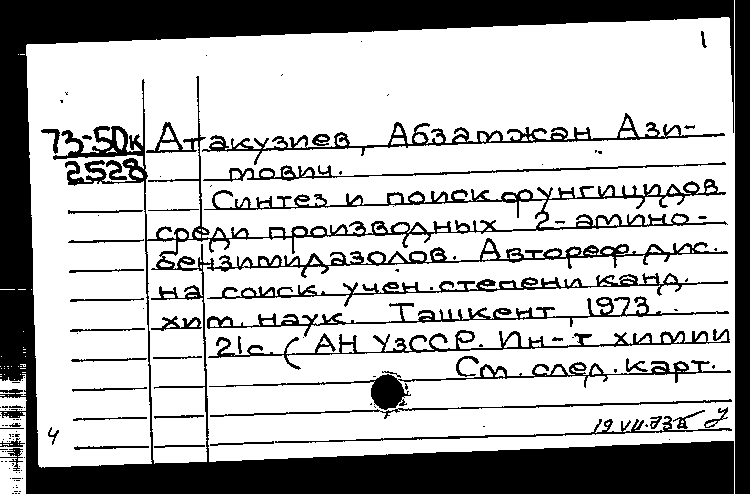 1
73-50к Атакузиев, Абзамжан Ази-
2528 мович.
Синтез и поиск фунгицидов
среди производных 2-амино-
бензимидазолов. Автореф. дис.
на соиск. учен. степени канд.
хим. наук. Ташкент, 1973.
21с. (АН УзССР. Ин-т химии
См. след. карт.
4 19 VII.73